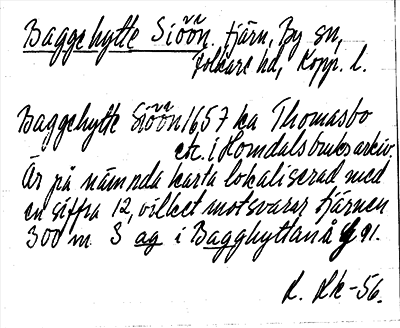 Baggehytte Siöön, tjärn, By sn,
Folkare hd, Kopp. l.
Baggehytte Siöön 1657 ka Thomasbo
etc. i Horndalsbruks arkiv.
Är på nämnda karta lokaliserad med
en siffra 12, vilket motsvarar tjärnen
300 m S ag i Bagghyttan å g 91.
R. Rk -56.